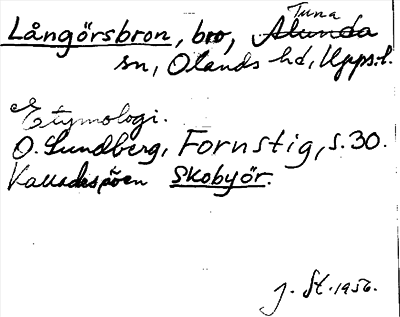 Långörsbron, bro, Tuna
sn, Olands hd, Upps.l.
Etymologi.
O. Lundberg, Fornstig, s. 30.
Kallades även Skobyör.
J. St. 1956.